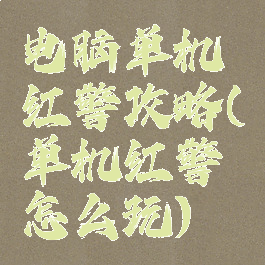 电脑单机
红警攻略(
单机红警
怎么玩)